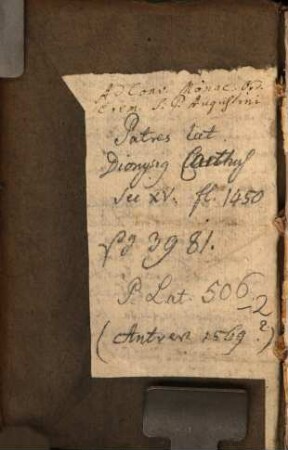 Ad Conv. Monac. Ord.
Erem. S. P. Augustini
Patres lat.
Dionysig Carthus
Sec XV. fl. 1450
3981.
P. Lat. 506
-2
(Antver. 1569?)